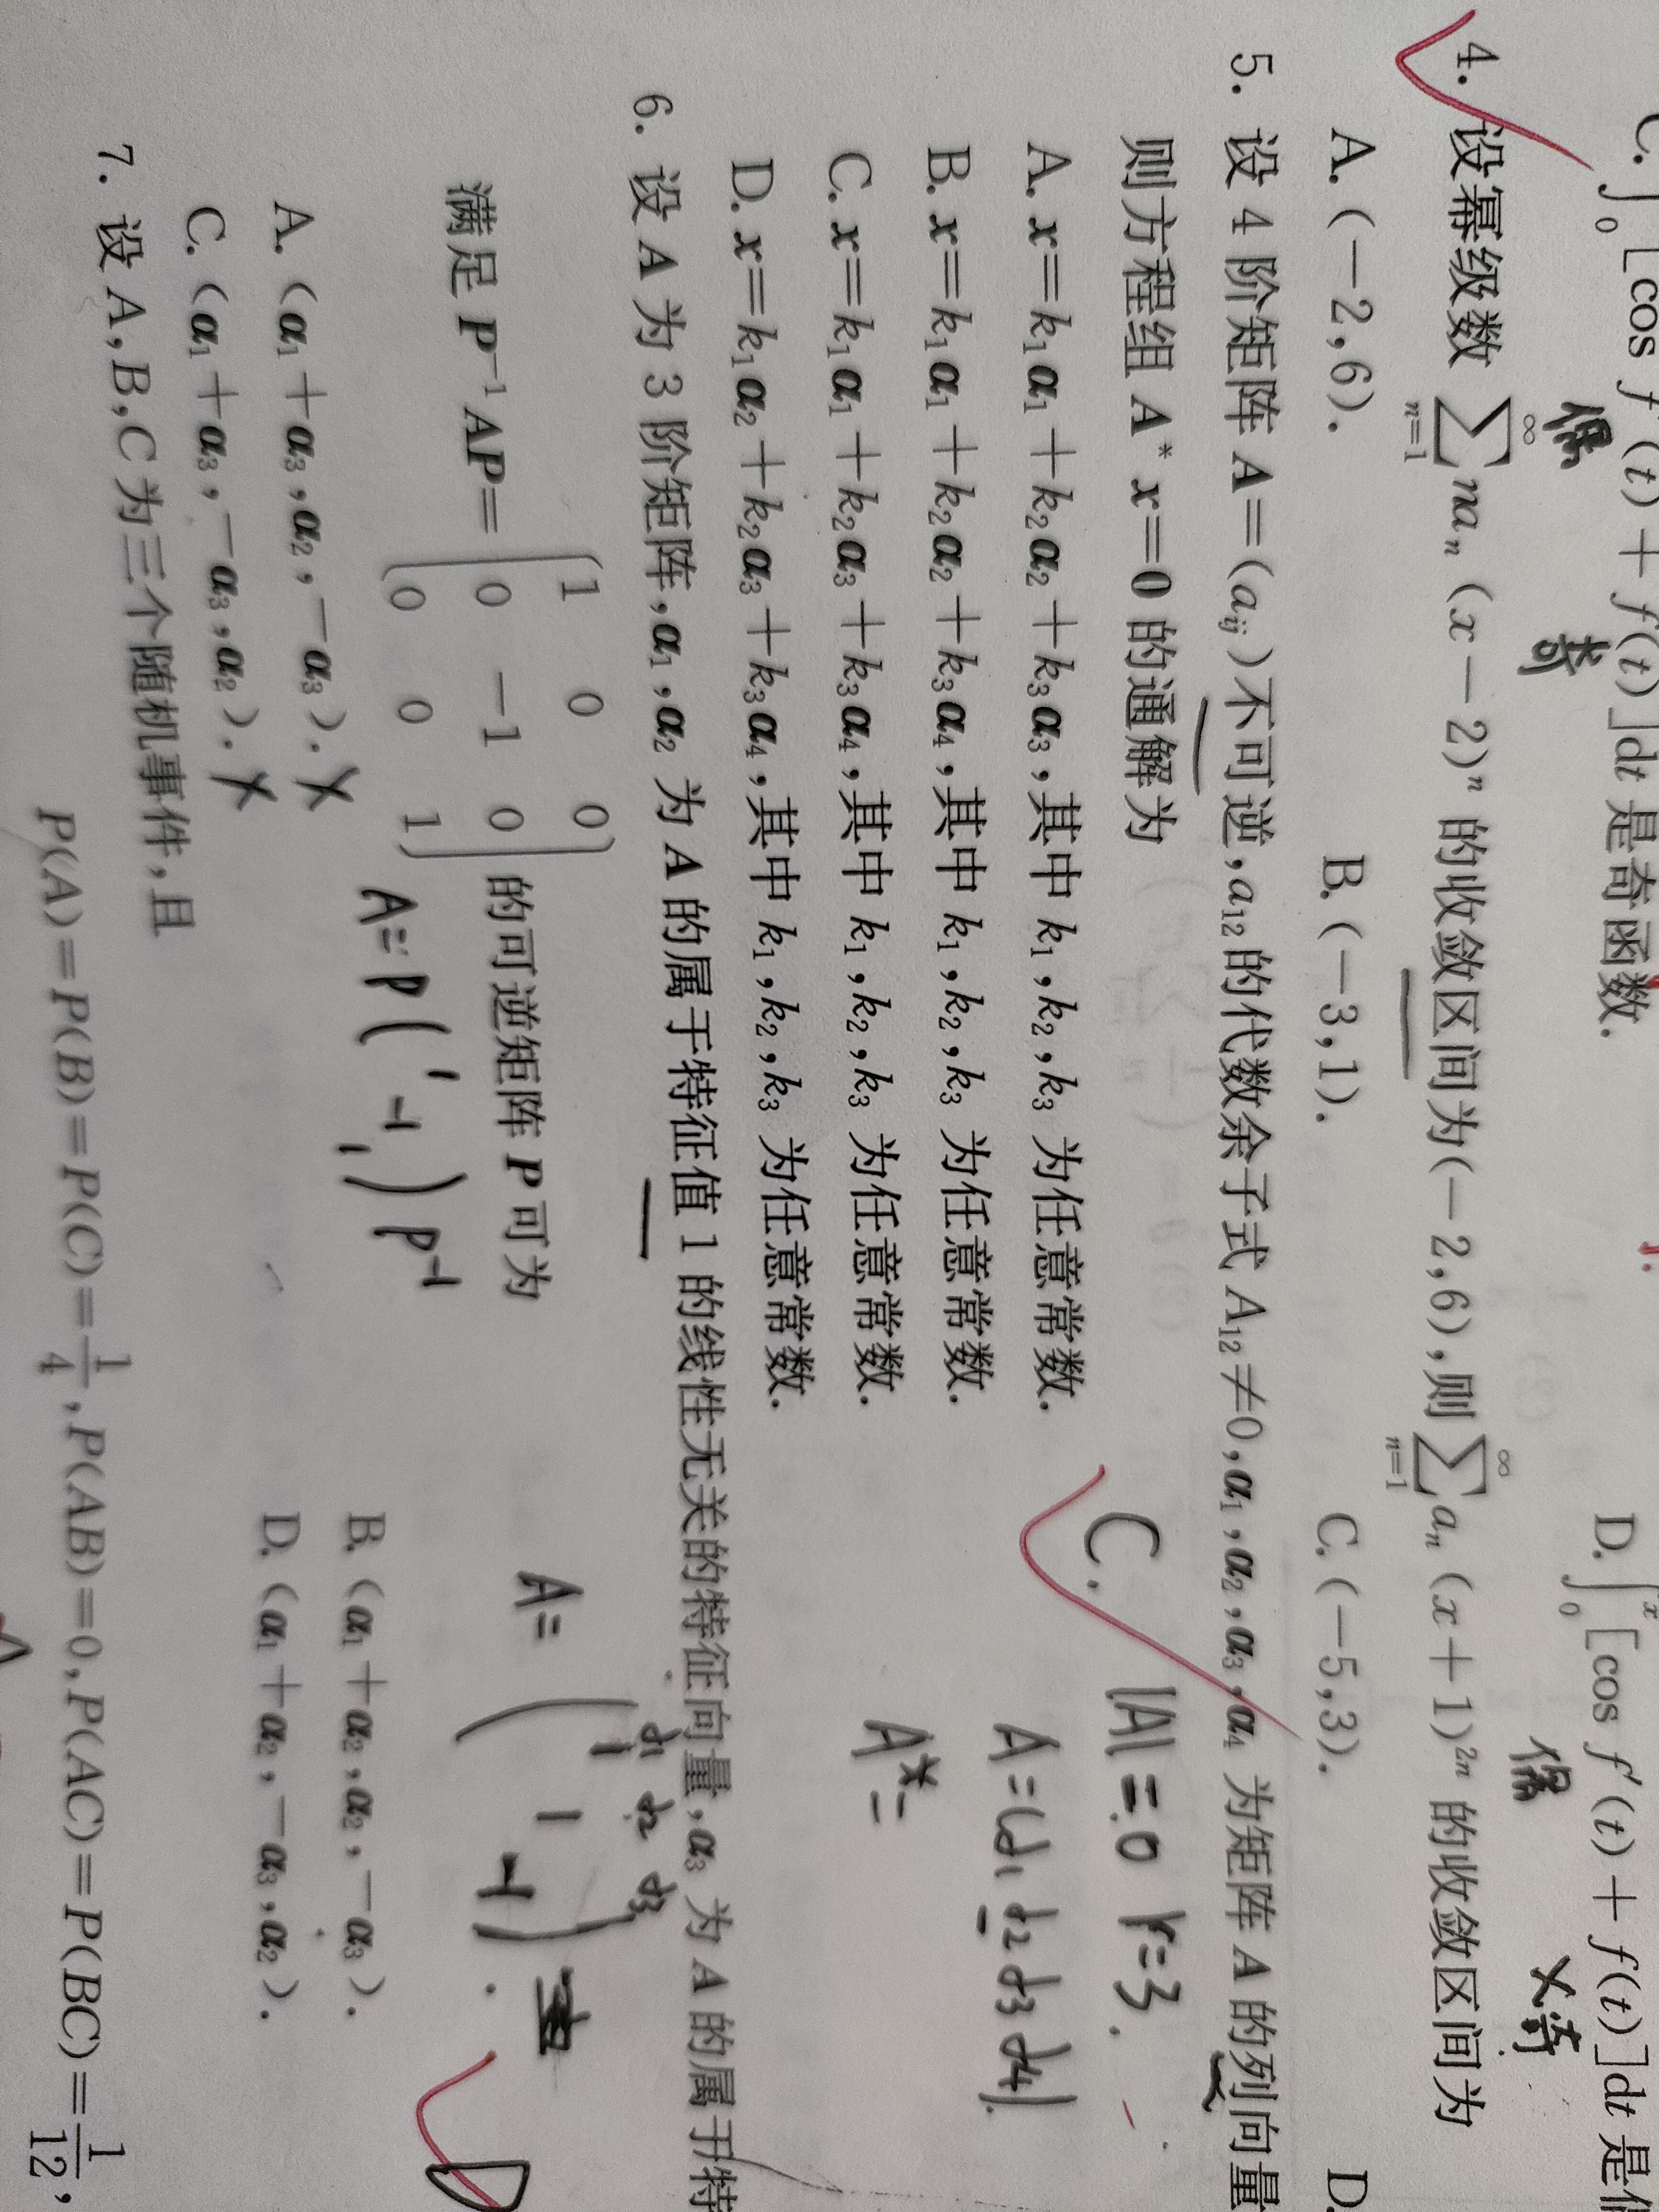 C. ∫₀ [cos f′(t)+f(t)]dt 是奇函数. D. ∫₀ˣ[cos f′(t)+f(t)]dt 是
偶 奇 偶 奇
4. 设幂级数 ∑_{n=1}^{∞} naₙ(x−2)ⁿ 的收敛区间为(−2,6),则 ∑_{n=1}^{∞} aₙ(x+1)²ⁿ 的收敛区间为
A. (−2,6). B. (−3,1). C. (−5,3). D.
5. 设 4 阶矩阵 A=(aᵢⱼ)不可逆,a₁₂的代数余子式 A₁₂≠0,α₁,α₂,α₃,α₄ 为矩阵 A 的列向量
则方程组 A* x=0 的通解为
C. |A|=0 r=3.
A. x=k₁α₁+k₂α₂+k₃α₃,其中 k₁,k₂,k₃ 为任意常数.
A=(α₁ α₂ α₃ α₄).
B. x=k₁α₁+k₂α₂+k₃α₄,其中 k₁,k₂,k₃ 为任意常数.
C. x=k₁α₁+k₂α₃+k₃α₄,其中 k₁,k₂,k₃ 为任意常数.
A*=
D. x=k₁α₂+k₂α₃+k₃α₄,其中 k₁,k₂,k₃ 为任意常数.
6. 设 A 为 3 阶矩阵,α₁,α₂ 为 A 的属于特征值 1 的线性无关的特征向量,α₃ 为 A 的属于特
α₁ α₂ α₃
1 0 0
满足 P⁻¹AP= 0 −1 0 的可逆矩阵 P 可为
0 0 1
A= ( 1 1 −1 ).
A=P( 1 −1 1 )P⁻¹
D
A. (α₁+α₃,α₂,−α₃). × B. (α₁+α₂,α₂,−α₃).
C. (α₁+α₃,−α₃,α₂). × D. (α₁+α₂,−α₃,α₂).
7. 设 A,B,C 为三个随机事件,且
P(A)=P(B)=P(C)=1/4,P(AB)=0,P(AC)=P(BC)=1/12,